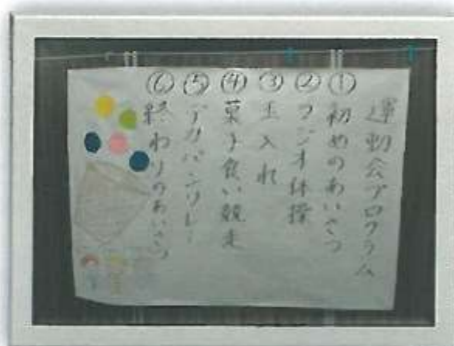 運動会プログラム
① 初めのあいさつ
② ラジオ体操
③ 玉入れ
④ 菓子食い競走
⑤ デカパンリレー
⑥ 終わりのあいさつ